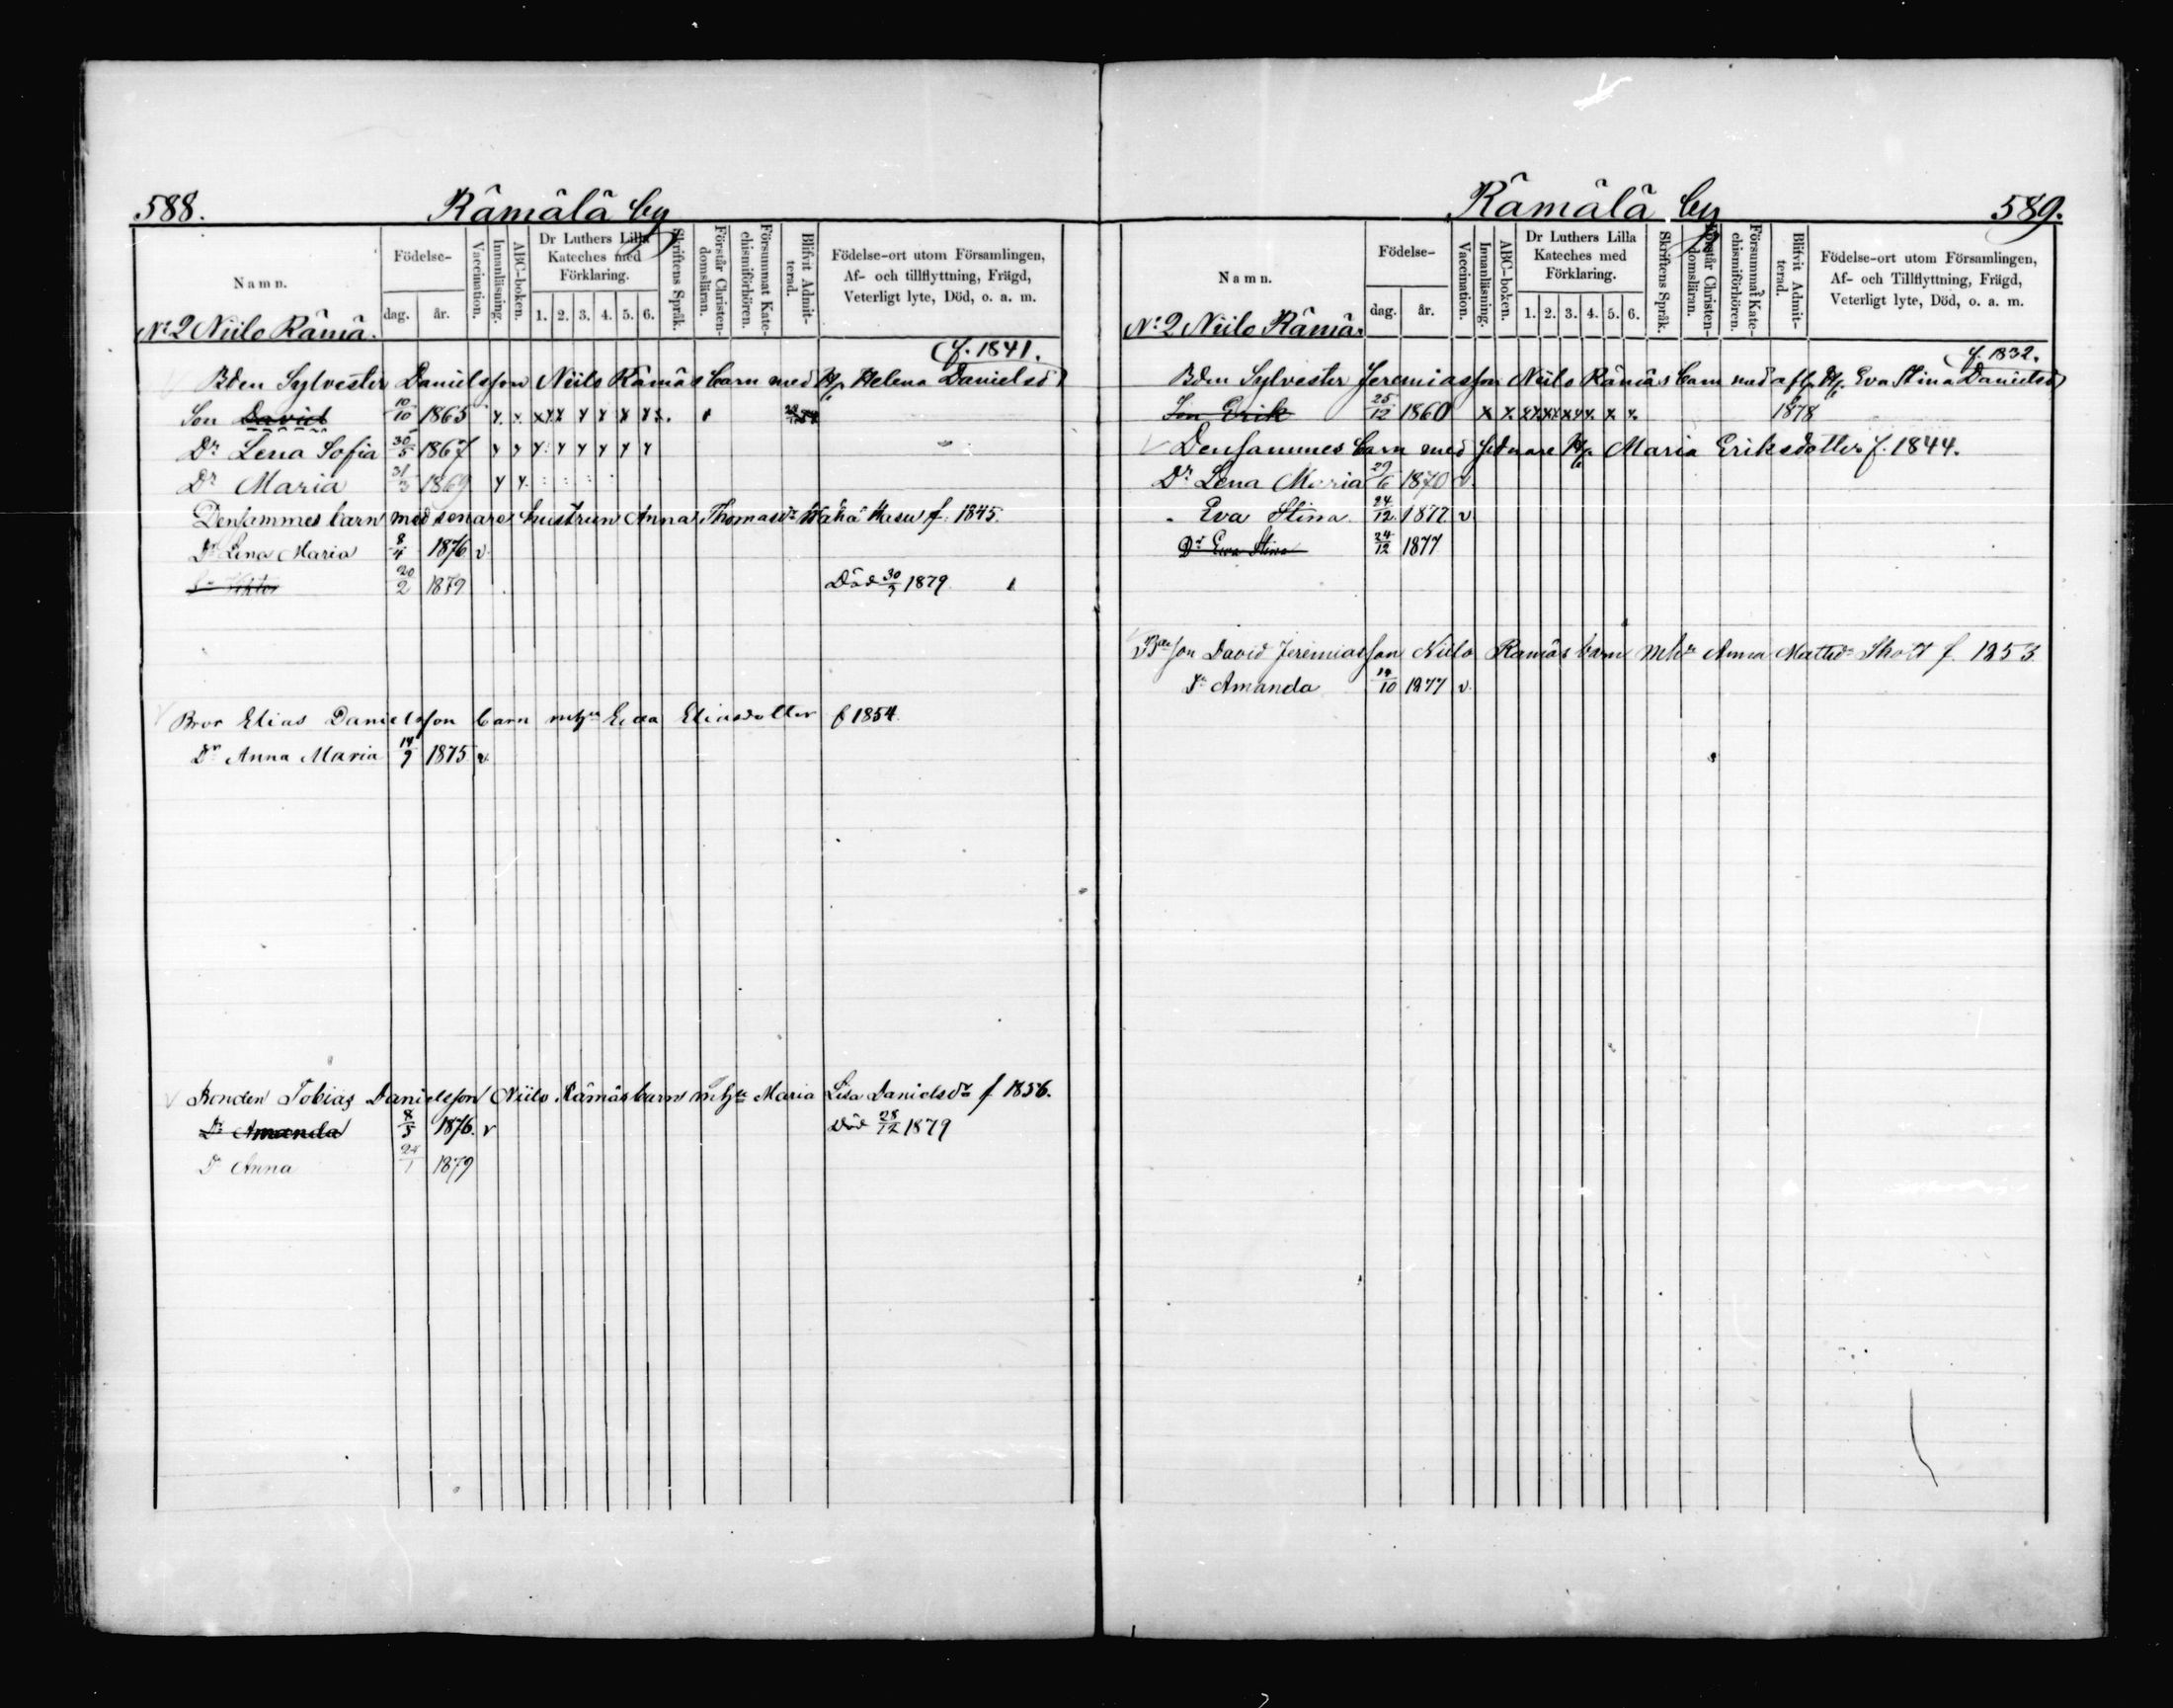 588.
Rämälä by
Namn.
Födelse-
dag.
år.
Vaccination.
Innanläsning.
ABC-boken.
Dr Luthers Lilla
Kateches med
Förklaring.
1. 2. 3. 4. 5. 6.
Skriftens Språk.
Förstår Christen-
domsläran.
Försummat Kate-
chismiförhören.
Blifvit Admit-
terad.
Födelse-ort utom Församlingen,
Af- och tillflyttning, Frägd,
Veterligt lyte, Död, o. a. m.
N:2 Niilo Rämä.
f. 1841.
Bden Sylvester Danielsson Niilo Rämäs barn med H/r Helena Danielsd
Son David 10/10 1865 x x x x x x x x x x
Dr Lena Sofia 30/5 1867 x x x x x x x x
Dr Maria 31/3 1869 x x
Densammes barn med senare hustrun Anna Thomasdr f. 1845.
Dr Lena Maria 8/4 1876 v
Sn Viktor 20/2 1879 Död 30/3 1879
Bror Elias Danielsson barn mhn Eliasdotter f 1854.
Dr Anna Maria 14/9 1875 v
Bonden Tobias Danielsson Niilo Rämäs barn mhn Maria Lisa Danielsdr f 1856.
Dr Amanda 8/5 1876. v Död 28/12 1879
Dr Anna 24/1 1879
Rämälä by
589.
Namn.
Födelse-
dag.
år.
Vaccination.
Innanläsning.
ABC-boken.
Dr Luthers Lilla
Kateches med
Förklaring.
1. 2. 3. 4. 5. 6.
Skriftens Språk.
Förstår Christen-
domsläran.
Försummat Kate-
chismiförhören.
Blifvit Admit-
terad.
Födelse-ort utom Församlingen,
Af- och Tillflyttning, Frägd,
Veterligt lyte, Död, o. a. m.
N:2 Niilo Rämä.
f. 1832.
Bden Sylvester Jeremiasson Niilo Rämäs barn med afl. H/r Eva Stina Danielsd
Son Erik 25/12 1860 x x x x x x x x x x 1878
Densammes barn med sednare H/r Maria Eriksdotter f. 1844.
Dr Lena Maria 29/6 1870 v.
Eva Stina 24/12 1877 v
Dr Eva Stina 24/12 1877
Bdeson David Jeremiasson Niilo Rämäs barn mhn Anna Mattsdr Skott f. 1853
Dr Amanda 14/10 1877 v.